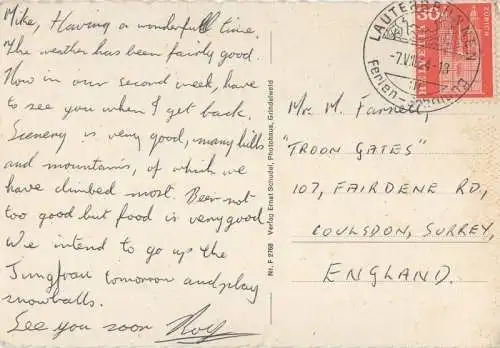 Mike, Having a wonderfull time.
The weather has been fairly good.
Now in our second week, have
to see you when I get back.
Scenery is very good, many hills
and mountains, of which we
have climbed most. Beer not
too good but food is very good
We intend to go up the
Jungfrau tomorrow and play
snowballs.
See you soon Roy
Nr. F 2768 Verlag Ernst Schudel, Photohaus, Grindelwald
LAUTERBRUNNEN
Ferien
30
HELVETIA
ZÜRICH
Mr. M. Farnell,
"TROON GATES"
107, FAIRDENE RD,
COULSDON, SURREY,
ENGLAND.